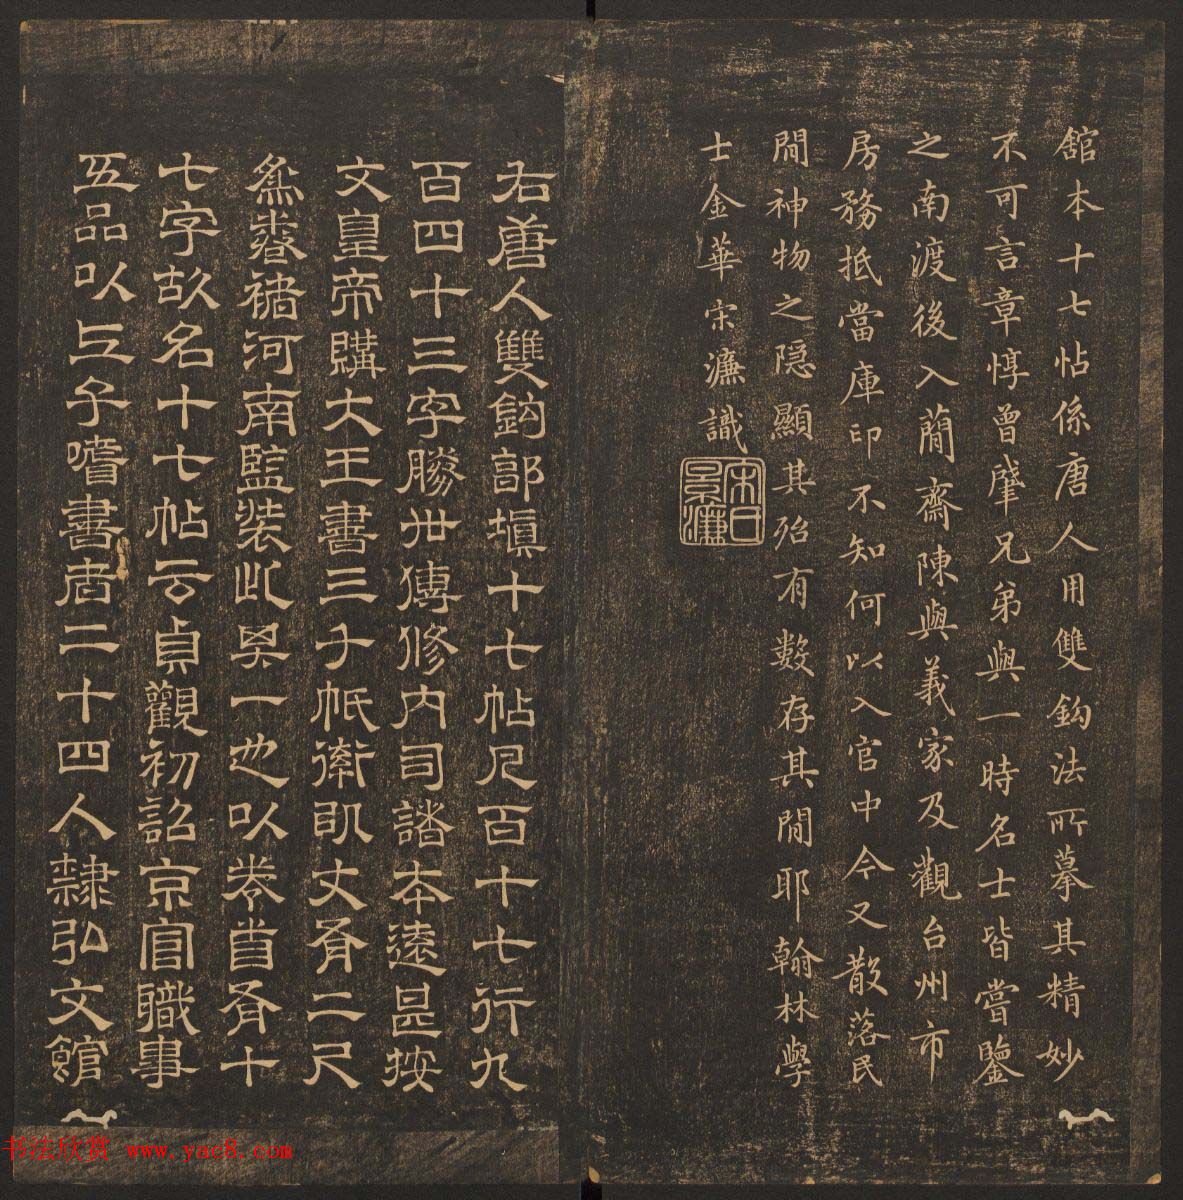 舘本十七帖係唐人用雙鈎法所摹其精妙
不可言章惇曾肇兄弟與一時名士皆嘗鑒
之南渡後入蕳齋陳與義家及觀台州市
房務抵當庫印不知何以入官中今又散落民
間神物之隠顯其殆有數存其間耶翰林學
士金華宋濂識
宋氏景濂
右唐人雙鈎郭填十七帖凡百十七行九
百四十三字勝世傳修内司諸本遠甚按
文皇帝購大王書三千帋率以丈有二尺
爲卷褚河南監裝此其一也以卷首有十
七字故名十七帖云貞觀初詔京官職事
五品以上子嗜書者二十四人隸弘文館
书法欣赏 www.yac8.com